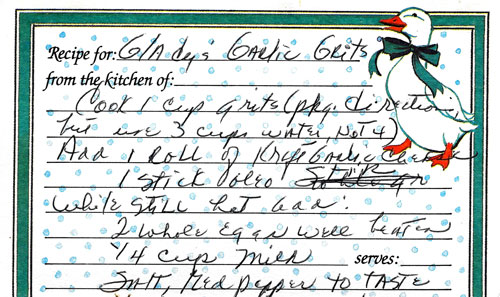 Recipe for: Gladys' Garlic Grits
from the kitchen of:
Cook 1 cup grits (pkg. direction,
but use 3 cups water, not 4)
Add 1 Roll of Kraft Garlic Cheese
1 stick oleo
while still hot add:
2 whole eggs well beaten
1/4 cup milk serves:
Salt, Red pepper to TASTE